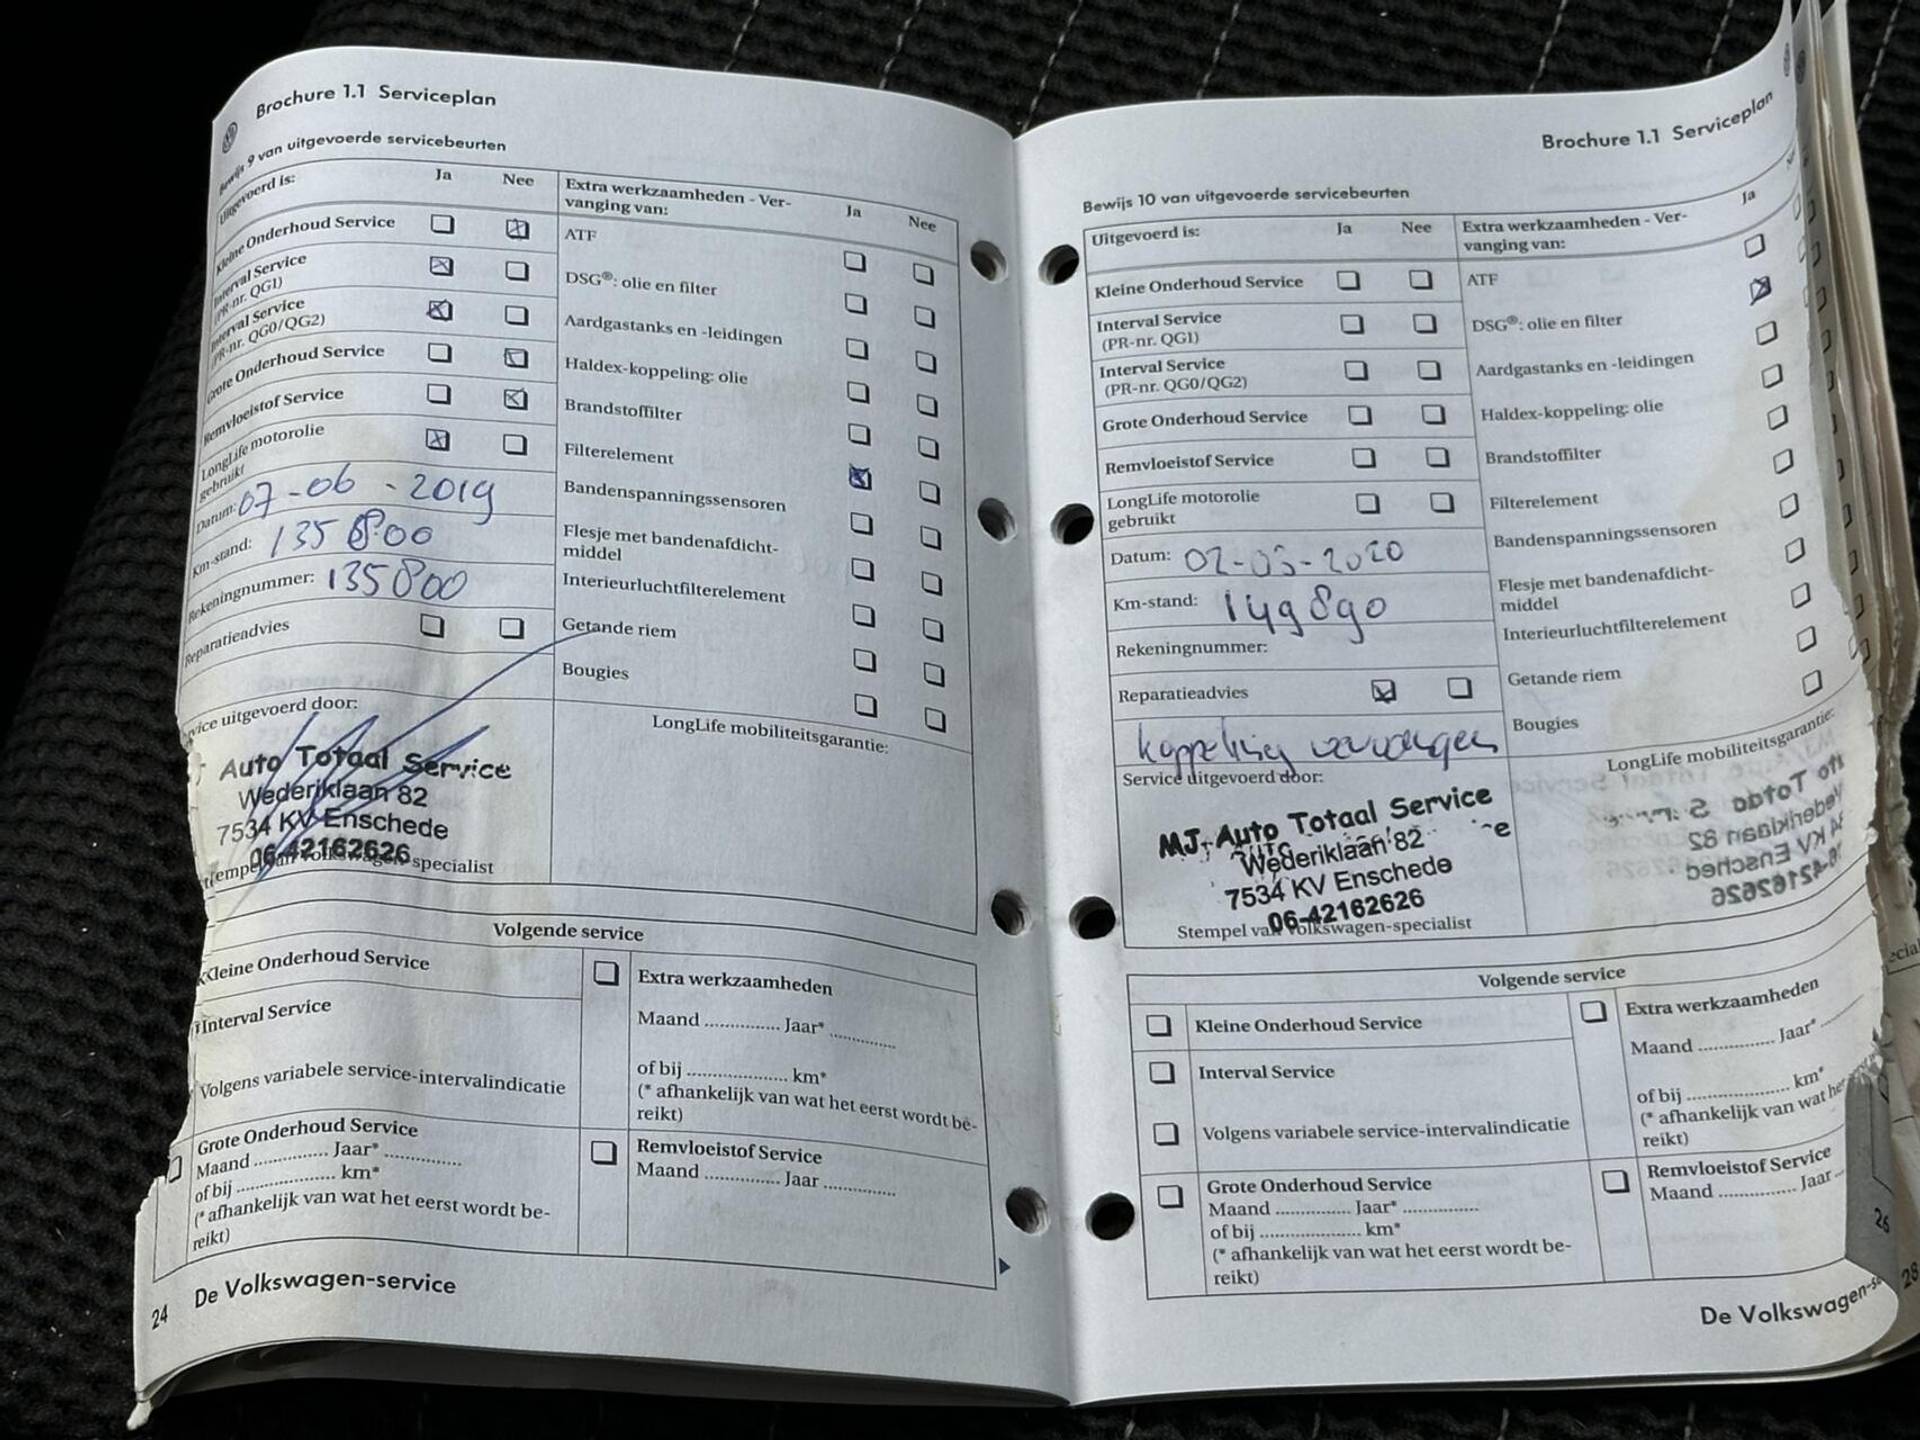 Brochure 1.1 Serviceplan
Bewijs 9 van uitgevoerde servicebeurten
Uitgevoerd is:
Ja
Nee
Kleine Onderhoud Service
Interval Service
(PR-nr. QG1)
Interval Service
(PR-nr. QG0/QG2)
Grote Onderhoud Service
Remvloeistof Service
LongLife motorolie
gebruikt
Datum: 07-06-2019
Km-stand: 135 800
Rekeningnummer: 135800
Reparatieadvies
Service uitgevoerd door:
Auto Totaal Service
Wederiklaan 82
7534 KV Enschede
06-42162626
Stempel van Volkswagen-specialist
Extra werkzaamheden - Ver-
vanging van:
Ja
Nee
ATF
DSG®: olie en filter
Aardgastanks en -leidingen
Haldex-koppeling: olie
Brandstoffilter
Filterelement
Bandenspanningssensoren
Flesje met bandenafdicht-
middel
Interieurluchtfilterelement
Getande riem
Bougies
LongLife mobiliteitsgarantie:
Volgende service
Kleine Onderhoud Service
Interval Service
Volgens variabele service-intervalindicatie
Grote Onderhoud Service
Maand .............. Jaar* ..............
of bij .................... km*
(* afhankelijk van wat het eerst wordt be-
reikt)
Extra werkzaamheden
Maand .............. Jaar* ..............
of bij .................... km*
(* afhankelijk van wat het eerst wordt be-
reikt)
Remvloeistof Service
Maand .............. Jaar ..............
24 De Volkswagen-service
Brochure 1.1 Serviceplan
Bewijs 10 van uitgevoerde servicebeurten
Uitgevoerd is:
Ja
Nee
Kleine Onderhoud Service
Interval Service
(PR-nr. QG1)
Interval Service
(PR-nr. QG0/QG2)
Grote Onderhoud Service
Remvloeistof Service
LongLife motorolie
gebruikt
Datum: 02-03-2020
Km-stand: 149890
Rekeningnummer:
Reparatieadvies
koppeling vervangen
Service uitgevoerd door:
MJ-Auto Totaal Service
Wederiklaan 82
7534 KV Enschede
06-42162626
Stempel van Volkswagen-specialist
Extra werkzaamheden - Ver-
vanging van:
Ja
ATF
DSG®: olie en filter
Aardgastanks en -leidingen
Haldex-koppeling: olie
Brandstoffilter
Filterelement
Bandenspanningssensoren
Flesje met bandenafdicht-
middel
Interieurluchtfilterelement
Getande riem
Bougies
LongLife mobiliteitsgarantie:
Volgende service
Kleine Onderhoud Service
Interval Service
Volgens variabele service-intervalindicatie
Grote Onderhoud Service
Maand .............. Jaar* ..............
of bij .................... km*
(* afhankelijk van wat het eerst wordt be-
reikt)
Extra werkzaamheden
Maand .............. Jaar* ..............
of bij .................... km*
(* afhankelijk van wat het
reikt)
Remvloeistof Service
Maand .............. Jaar
De Volkswagen-se
26
28